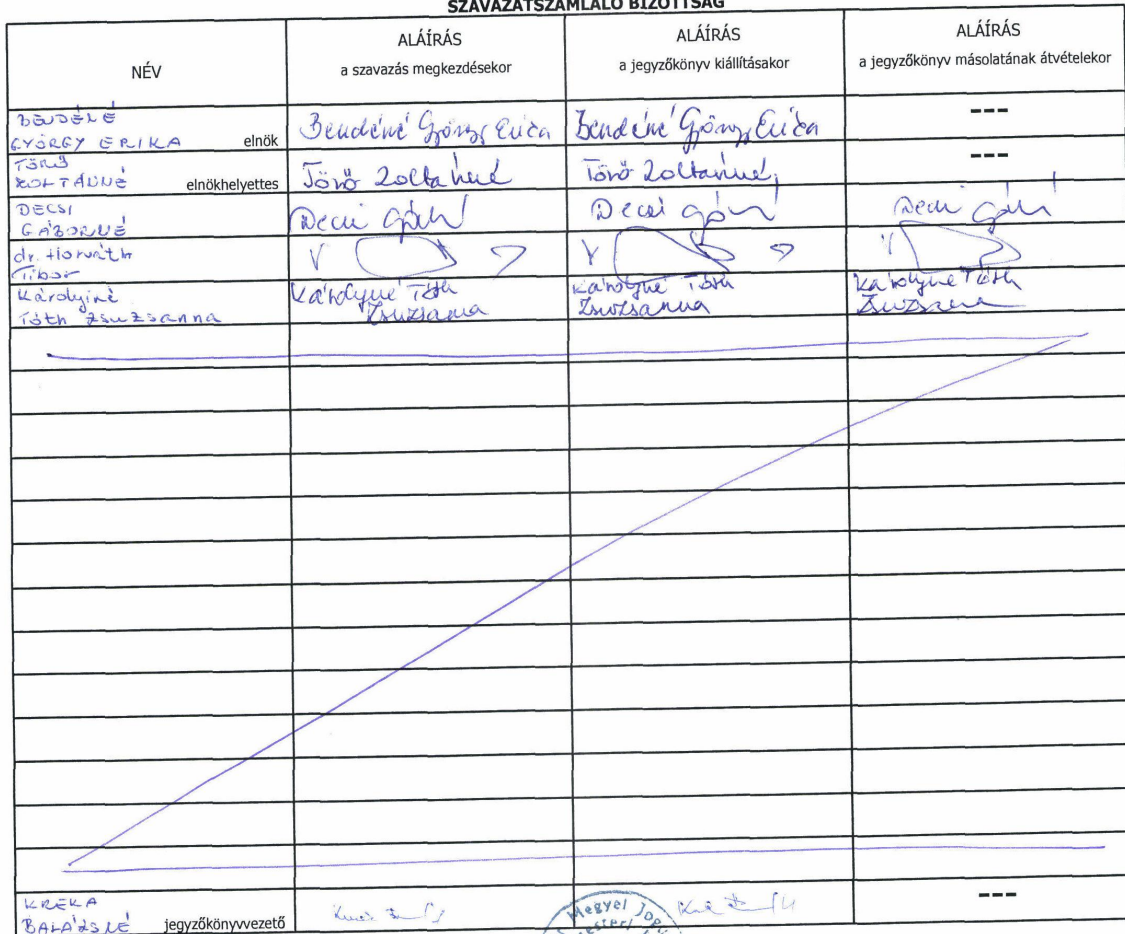 SZAVAZATSZÁMLÁLÓ BIZOTTSÁG
NÉV
ALÁÍRÁS
a szavazás megkezdésekor
ALÁÍRÁS
a jegyzőkönyv kiállításakor
ALÁÍRÁS
a jegyzőkönyv másolatának átvételekor
BENDÉNÉ
GYÖRGY ERIKA elnök
Bendéné György Erica
Bendéné György Erica
---
TÖRŐ
ZOLTÁNNÉ elnökhelyettes
Törő Zoltánné
Törő Zoltánné
---
DECSI
GÁBORNÉ
Decsi
Decsi
Decsi
dr. Horváth
Tibor
Károlyiné
Tóth Zsuzsanna
Károlyiné Tóth
Zsuzsanna
Károlyiné Tóth
Zsuzsanna
Károlyiné Tóth
Zsuzsanna
KREKA
BALÁZSNÉ jegyzőkönyvvezető
Megyei
---